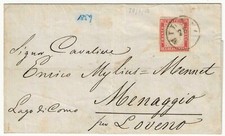 1859
Signor Cavaliere
Enrico Mylius-Monnet
Menaggio
Lago di Como
per Loveno